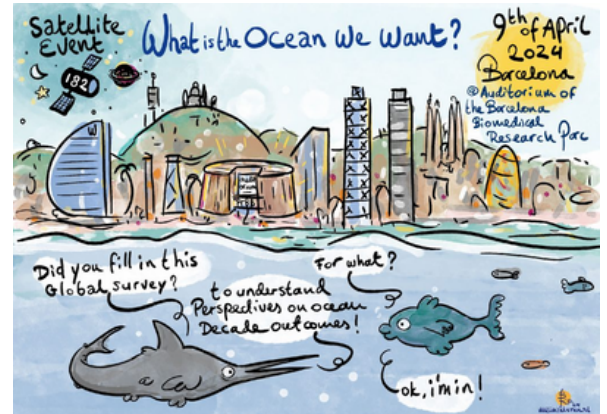 Satellite
Event
182
What is the Ocean We Want?
9th
of April
2024
Barcelona
@ Auditorium of
the Barcelona
Biomedical
Research Parc
Did you fill in this
Global survey?
For what?
to understand
Perspectives on ocean
Decade outcomes!
ok, i'm in!